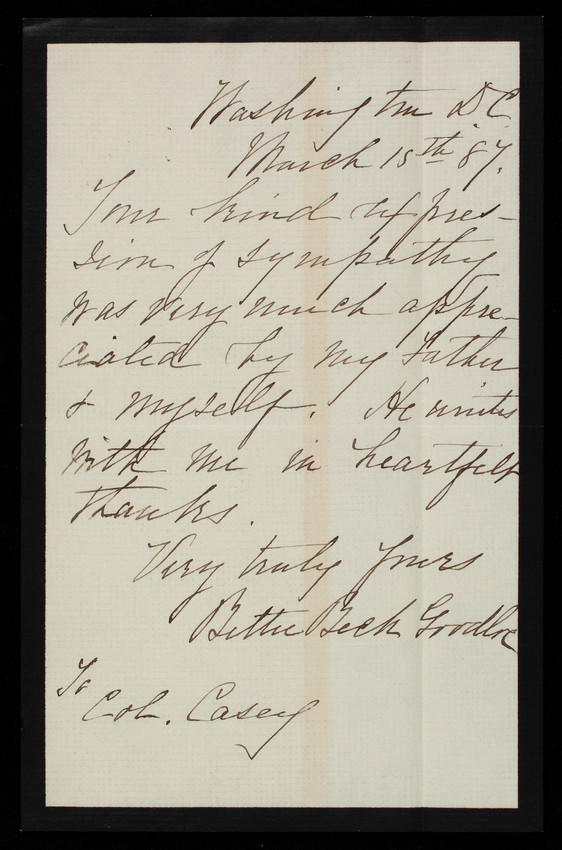 Washington D C
March 15th 87.
Your kind expres-
sion of sympathy
was very much appre-
ciated by my Father
& myself. He unites
with me in heartfelt
thanks.
Very truly yours
Bettie Beck Goodloe
To
Col. Casey